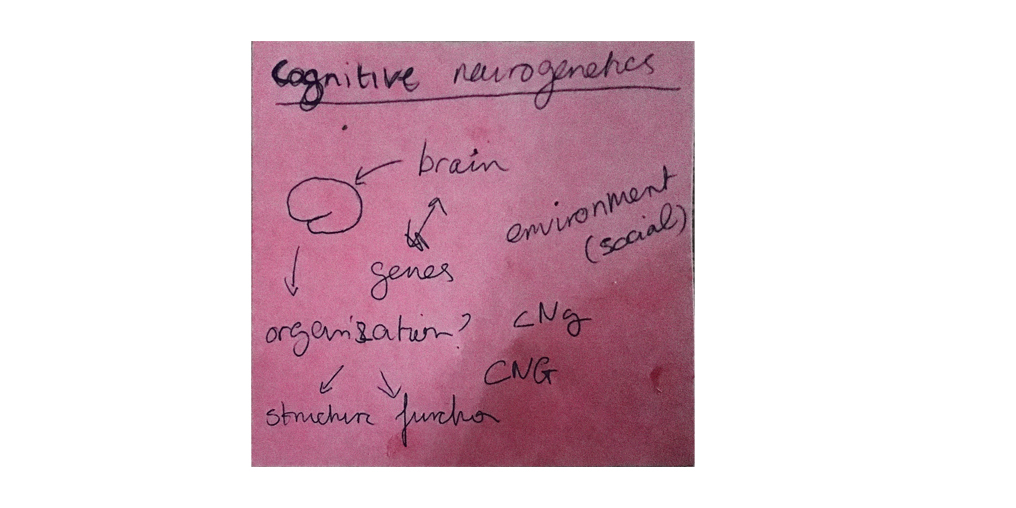 cognitive neurogenetics
brain
environment
(social)
genes
organization?
CNg
CNG
structure function